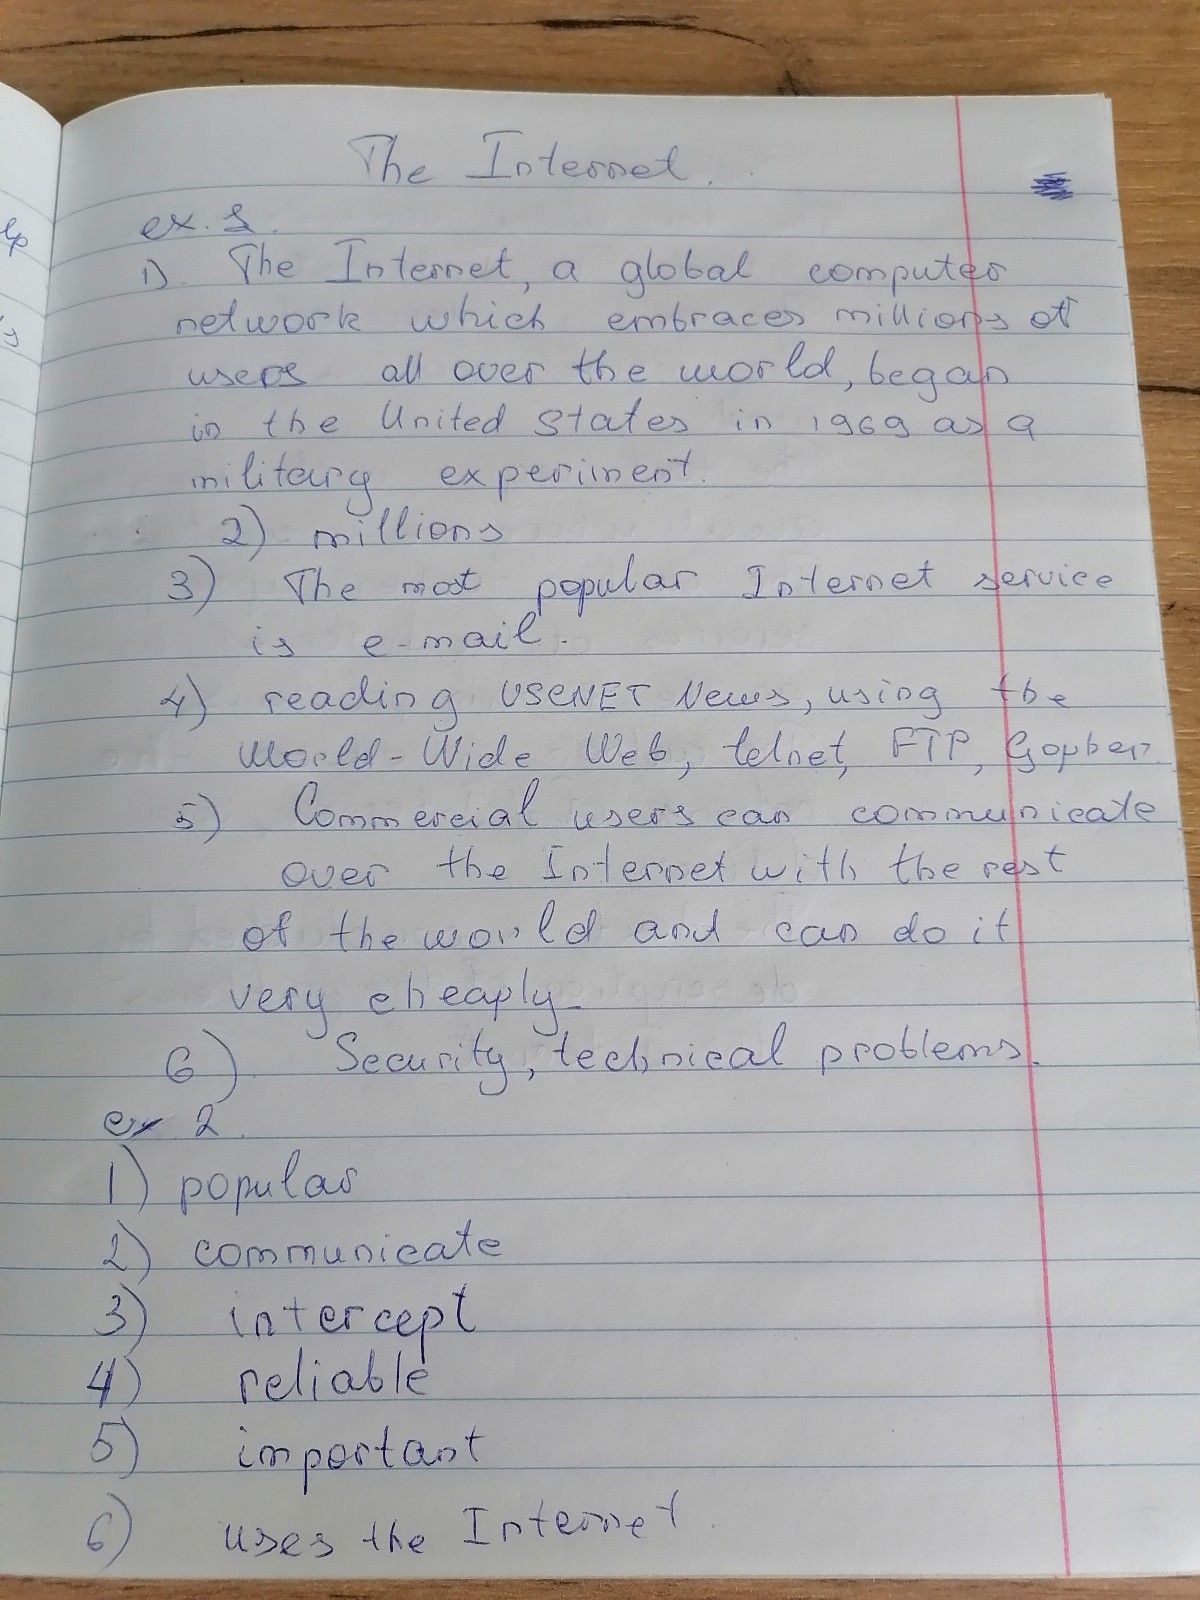 The Internet.
ex. 1.
1). The Internet, a global computer
network which embraces millions of
users all over the world, began
in the United States in 1969 as a
military experiment.
2) millions
3) The most popular Internet service
is e-mail.
4) reading USENET News, using the
World-Wide Web, telnet, FTP, Gopher
5) Commercial users can communicate
over the Internet with the rest
of the world and can do it
very cheaply.
6). Security, technical problems.
ex 2.
1) popular
2) communicate
3) intercept
4) reliable
5) important
6) uses the Internet.